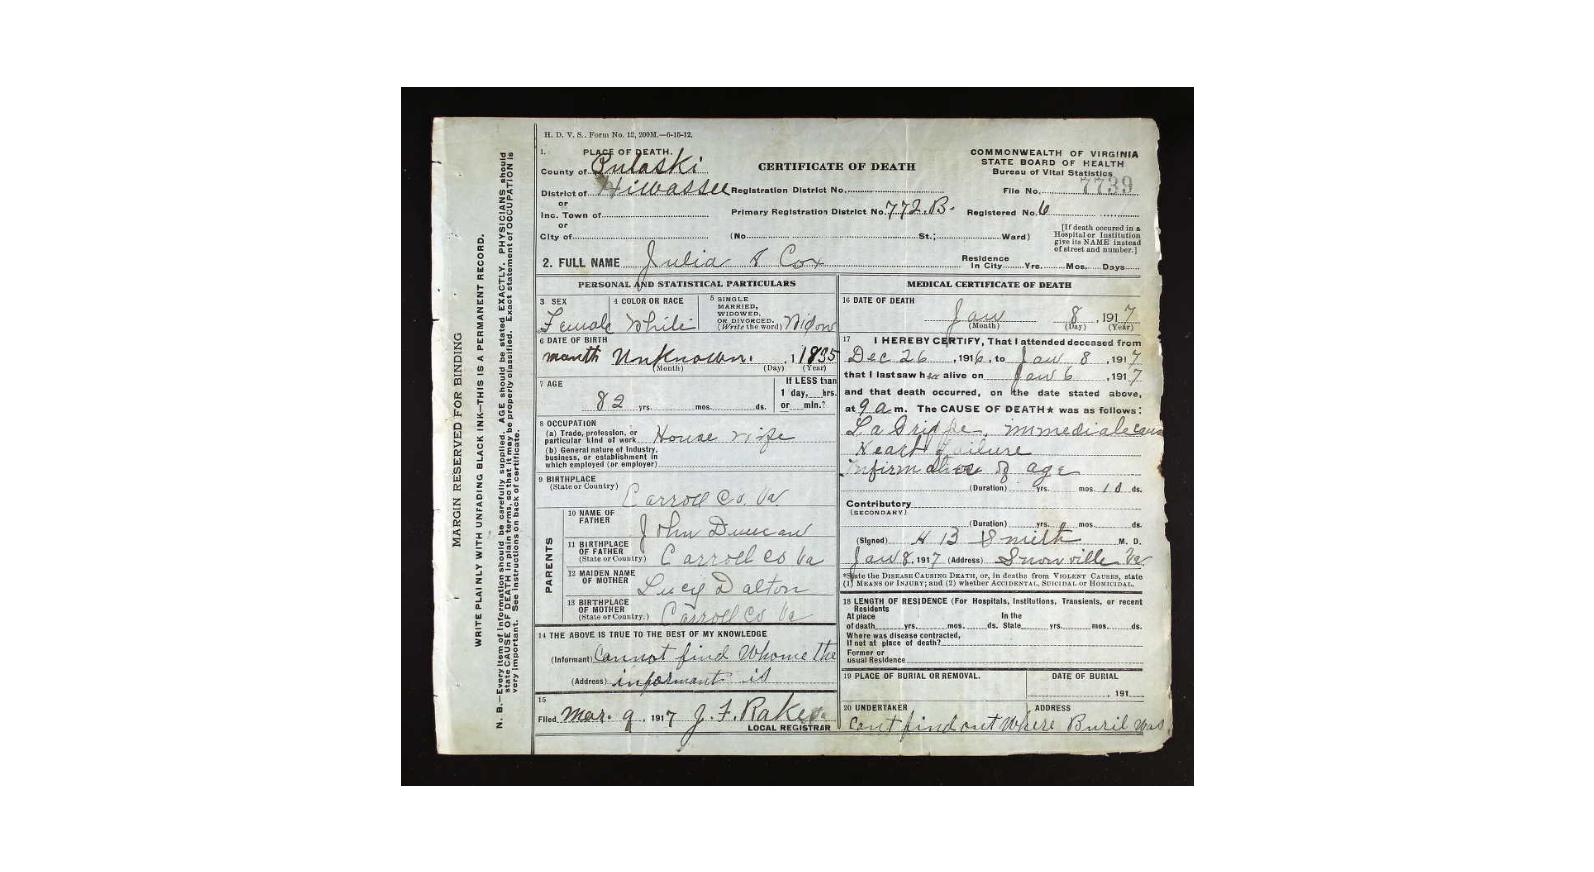 H. D. V. S.. Form No. 12, 200M.—6-15-12.
MARGIN RESERVED FOR BINDING
WRITE PLAINLY WITH UNFADING BLACK INK—THIS IS A PERMANENT RECORD.
N. B.—Every item of information should be carefully supplied. AGE should be stated EXACTLY. PHYSICIANS should
state CAUSE OF DEATH in plain terms, so that it may be properly classified. Exact statement of OCCUPATION is
very important. See instructions on back of certificate.
1. PLACE OF DEATH.
County of Pulaski
District of Hiwassee
or
Inc. Town of
or
City of
CERTIFICATE OF DEATH
Registration District No.
Primary Registration District No. 772.B.
(No. St.; Ward)
COMMONWEALTH OF VIRGINIA
STATE BOARD OF HEALTH
Bureau of Vital Statistics
File No. 7739
Registered No. 6
[If death occured in a
Hospital or Institution
give its NAME instead
of street and number.]
2. FULL NAME Julia & Cox
Residence
In City Yrs. Mos. Days
PERSONAL AND STATISTICAL PARTICULARS
3 SEX
Female
4 COLOR OR RACE
White
5 SINGLE
MARRIED,
WIDOWED,
OR DIVORCED.
(Write the word) Widow
6 DATE OF BIRTH
month Unknown. , 1 1835
(Month) (Day) (Year)
7 AGE
82 yrs. mos. ds.
If LESS than
1 day, hrs.
or min.?
8 OCCUPATION
(a) Trade, profession, or
particular kind of work House wife
(b) General nature of Industry,
business, or establishment in
which employed (or employer)
9 BIRTHPLACE
(State or Country)
Carroll Co. Va
PARENTS
10 NAME OF
FATHER John Duncan
11 BIRTHPLACE
OF FATHER
(State or Country) Carroll Co Va
12 MAIDEN NAME
OF MOTHER Lucy Dalton
13 BIRTHPLACE
OF MOTHER
(State or Country.) Carroll Co Va
14 THE ABOVE IS TRUE TO THE BEST OF MY KNOWLEDGE
(Informant) Cannot find Whome the
(Address) informant is
15
Filed Mar. 9, 1917 J. F. Rake
LOCAL REGISTRAR
MEDICAL CERTIFICATE OF DEATH
16 DATE OF DEATH
Jan 8 , 1917
(Month) (Day) (Year)
17 I HEREBY CERTIFY, That I attended deceased from
Dec 26 , 1916, to Jan 8 , 1917
that I last saw her alive on Jan 6 , 1917
and that death occurred, on the date stated above,
at 9 a m. The CAUSE OF DEATH★ was as follows:
La Grippe, immediate
Heart Failure
of age
(Duration) yrs. mos. 10 ds.
Contributory
(SECONDARY)
(Duration) yrs. mos. ds.
(Signed) H B Smith M. D.
Jan 8, 1917 (Address) Snowville Va
*State the DISEASE CAUSING DEATH, or, in deaths from VIOLENT CAUSES, state
(1) MEANS OF INJURY; and (2) whether ACCIDENTAL, SUICIDAL or HOMICIDAL.
18 LENGTH OF RESIDENCE (For Hospitals, Institutions, Transients, or recent
Residents
At place In the
of death yrs. mos. ds. State yrs. mos. ds.
Where was disease contracted,
If not at place of death?
Former or
usual Residence
19 PLACE OF BURIAL OR REMOVAL. DATE OF BURIAL
, 191
20 UNDERTAKER ADDRESS
Cant find out Where Buril Was